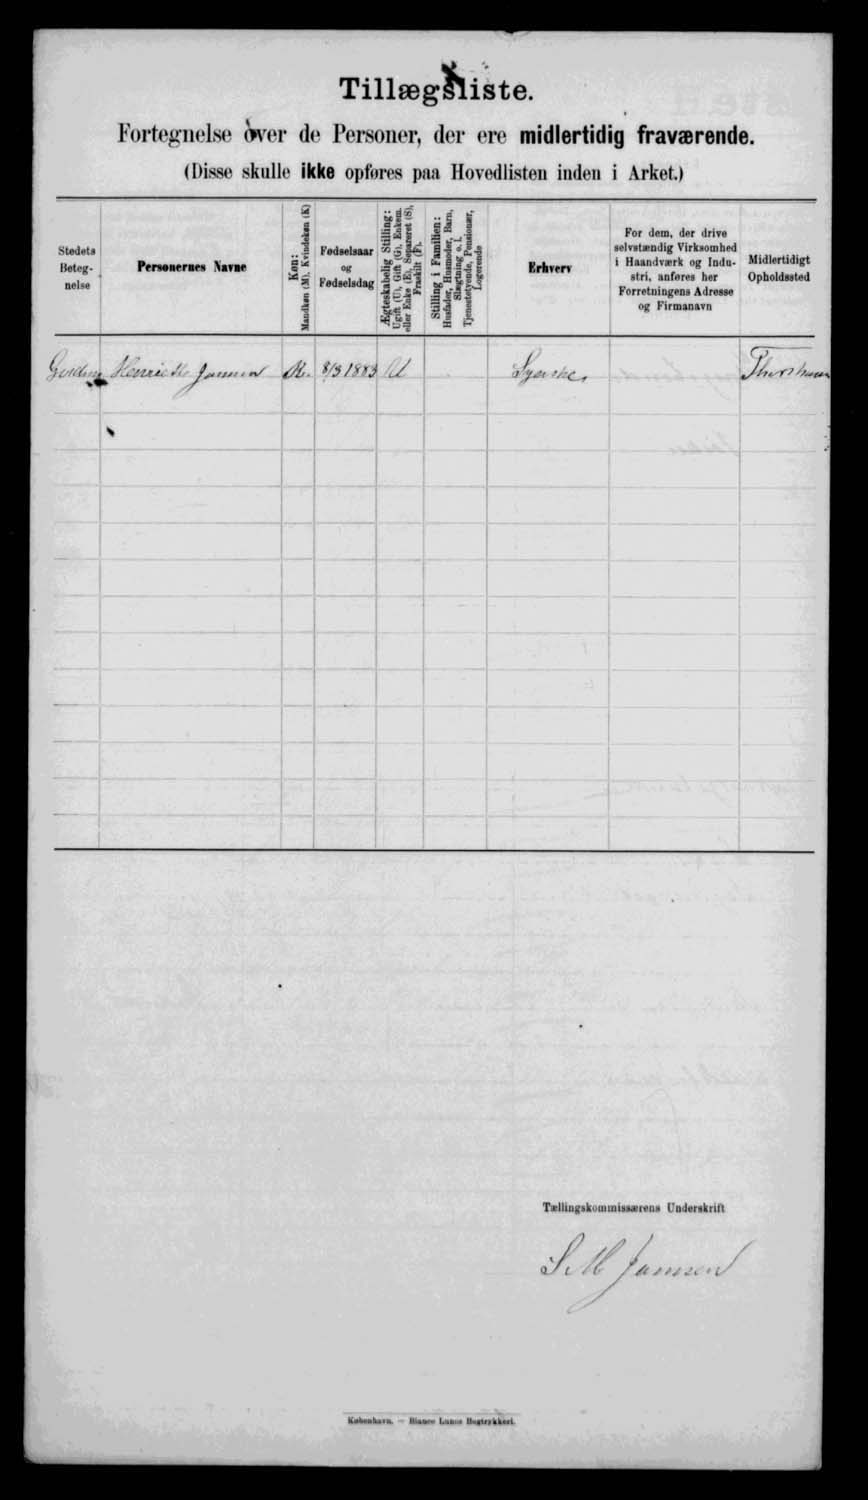 Tillægsliste.
Fortegnelse over de Personer, der ere midlertidig fraværende.
(Disse skulle ikke opføres paa Hovedlisten inden i Arket.)
Stedets
Beteg-
nelse
Personernes Navne
Køn:
Mandkøn (M), Kvindekøn (K)
Fødselsaar
og
Fødselsdag
Ægteskabelig Stilling:
Ugift (U), Gift (G), Enkem.
eller Enke (E), Separeret (S),
Fraskilt (F).
Stilling i Familien:
Husfader, Husmoder, Barn,
Slægtning o. l.
Tjenestetyende, Pensionær,
Logerende
Erhverv
For dem, der drive
selvstændig Virksomhed
i Haandværk og Indu-
stri, anføres her
Forretningens Adresse
og Firmanavn
Midlertidigt
Opholdssted
Henriette Jansen K. 8/3 1883 U Syerske Thorshavn
Tællingskommissærens Underskrift
S M Jansen
København. — Bianco Lunos Bogtrykkeri.